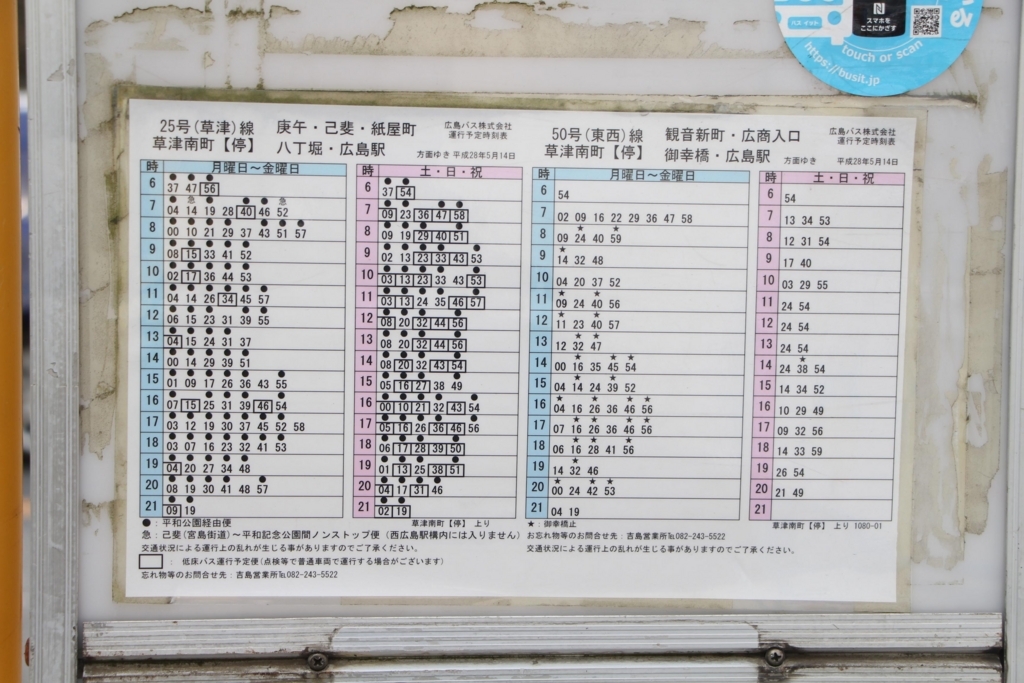 バス イット
スマホを
ここにかざす
touch or scan
https://busit.jp
25号(草津)線 庚午・己斐・紙屋町
草津南町【停】 八丁堀・広島駅
広島バス株式会社
運行予定時刻表
方面ゆき 平成28年5月14日
時 月曜日～金曜日
6 37 47 56
7 04 14 19 28 40 46 52
8 00 10 21 29 37 43 51 57
9 08 15 33 41 52
10 02 17 36 44 53
11 04 14 26 34 45 57
12 06 15 23 31 39 55
13 04 15 24 31 37
14 00 14 29 39 51
15 01 09 17 26 36 43 55
16 07 15 25 31 39 46 54
17 03 12 19 30 37 45 52 58
18 03 07 16 23 32 41 53
19 04 20 27 34 48
20 08 19 30 41 48 57
21 09 19
土・日・祝
6 37 54
7 09 23 36 47 58
8 09 19 29 40 51
9 02 13 23 33 43 53
10 03 13 23 33 43 53
11 03 13 24 35 46 57
12 08 20 32 44 56
13 08 20 32 44 56
14 08 20 32 43 54
15 05 16 27 38 49
16 00 10 21 32 43 54
17 05 16 26 36 46 56
18 06 17 28 39 50
19 01 13 25 38 51
20 04 17 31 46
21 02 19
●：平和公園経由便
草津南町【停】 上り
急：己斐(宮島街道)～平和記念公園間ノンストップ便 (西広島駅構内には入りません)
交通状況による運行上の乱れが生じる事がありますのでご了承ください。
： 低床バス運行予定便(点検等で普通車両で運行する場合がございます)
忘れ物等のお問合せ先：吉島営業所℡082-243-5522
50号(東西)線 観音新町・広商入口
草津南町【停】 御幸橋・広島駅
広島バス株式会社
運行予定時刻表
方面ゆき 平成28年5月14日
時 月曜日～金曜日
6 54
7 02 09 16 22 29 36 47 58
8 09 24 40 59
9 14 32 48
10 04 20 37 52
11 09 24 40 56
12 11 23 40 57
13 12 32 47
14 00 16 35 45 54
15 04 14 24 39 52
16 04 16 26 36 46 56
17 07 16 26 36 46 56
18 06 16 28 41 56
19 14 32 46
20 00 24 42 53
21 04 19
時 土・日・祝
6 54
7 13 34 53
8 12 31 54
9 17 40
10 03 29 55
11 24 54
12 24 54
13 24 54
14 24 38 54
15 14 34 52
16 10 29 49
17 09 32 56
18 14 33 59
19 26 54
20 21 49
21
★：御幸橋止
草津南町【停】 上り 1080-01
お忘れ物等のお問合せ先：吉島営業所℡082-243-5522
交通状況による運行上の乱れが生じる事がありますのでご了承ください。